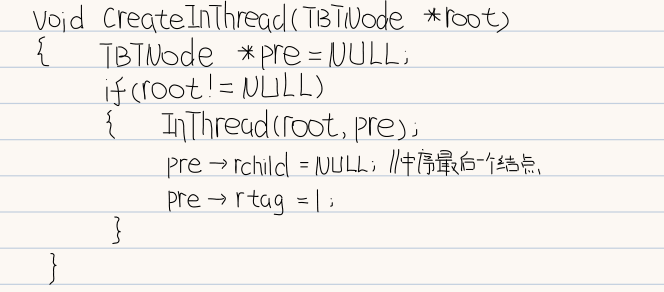 void CreateInThread(TBTNode *root)
{ TBTNode *pre=NULL;
if(root!=NULL)
{ InThread(root,pre);
pre→rchild=NULL; //中序最后一个结点
pre→rtag=1;
}
}